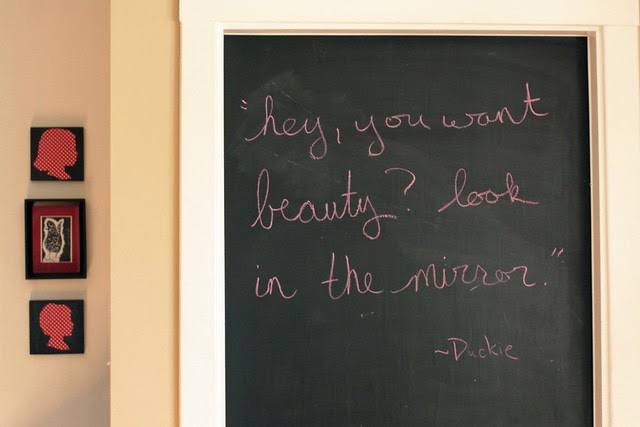 "hey, you want
beauty? look
in the mirror."
~Duckie